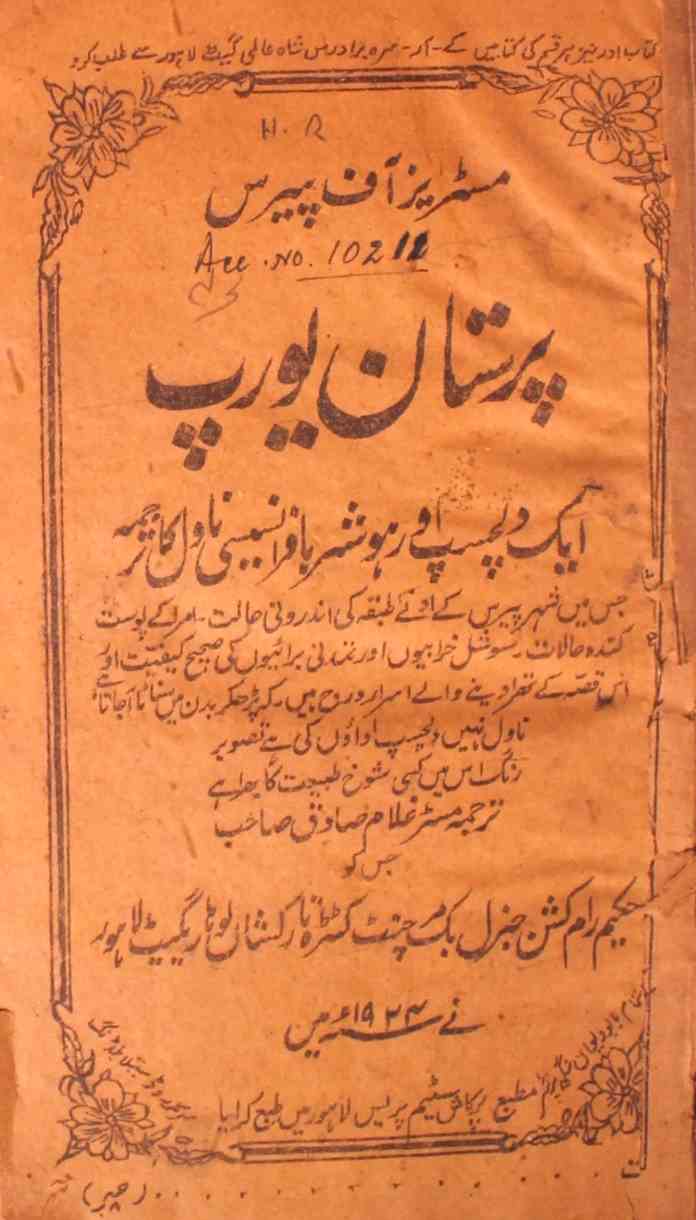 کتاب اور نیز ہر قسم کی کتابیں کے - آر - مہرہ برادرس شاہ عالمی گیٹ لاہور سے طلب کرو
H. R
مسٹریز آف پیرس
Acc. No. 10211
پرستان یورپ
ایک دلچسپ اور ہوشربا فرانسیسی ناول کا ترجمہ
جس میں شہر پیرس کے ادنےٰ طبقہ کی اندرونی حالت - امرا کے پوست
کندہ حالات - سوشل خرابیوں اور تمدنی برائیوں کی صحیح کیفیت اور
اس قصہ کے تھرا دینے والے اسرار درج ہیں - کہ پڑھکر بدن میں سناٹا آجاتا ہے
ناول نہیں دلچسپ اداؤں کی ہے تصویر
رنگ اس میں کسی شوخ طبیعت کا بھرا ہے
ترجمہ مسٹر غلام صادق صاحب
جس کو
حکیم رام کشن جنرل بک مرچنٹ کٹڑہ تارکشاں لوہاریگیٹ لاہور
نے سنہ ۱۹۲۴ء میں
مطبع پرکاش سٹیم پریس لاہور میں طبع کرایا